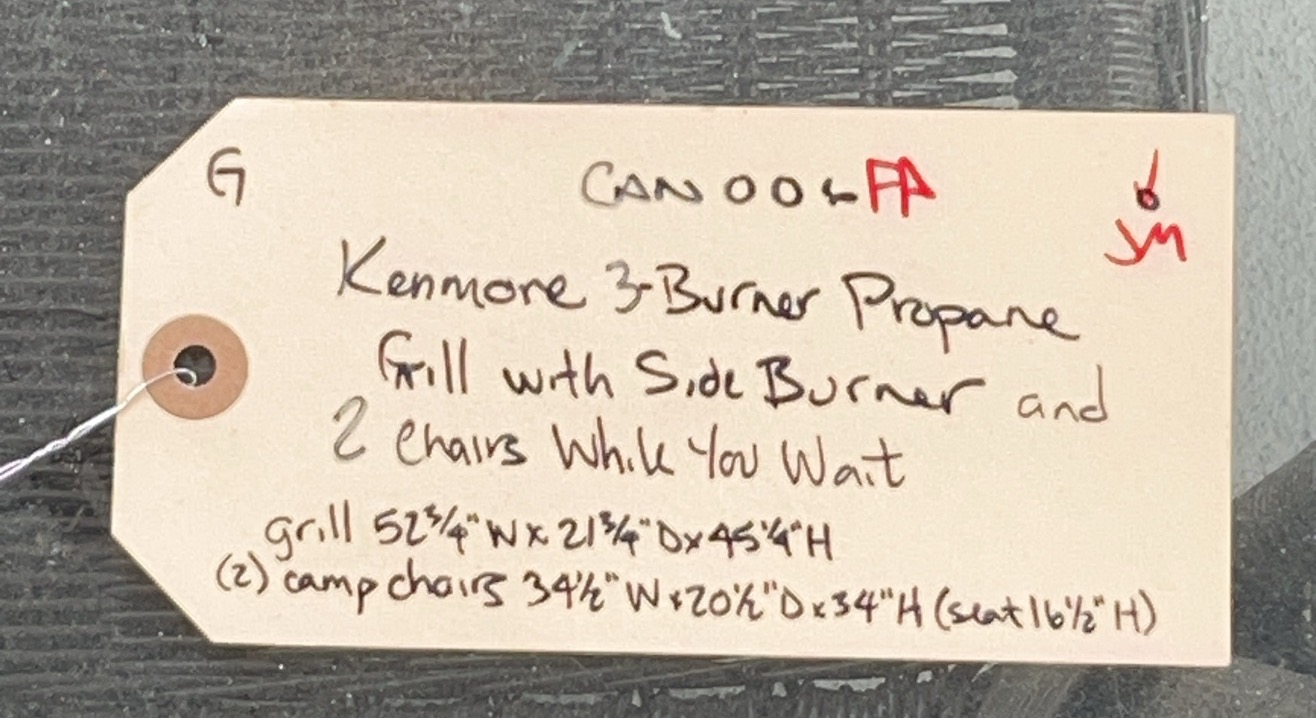 G
CAN 006 FA
JM
Kenmore 3-Burner Propane
Grill with Side Burner and
2 Chairs While You Wait
grill 52 3/4" W x 21 3/4" D x 45 1/4" H
(2) camp chairs 34 1/2" W x 20 1/2" D x 34" H (seat 16 1/2" H)